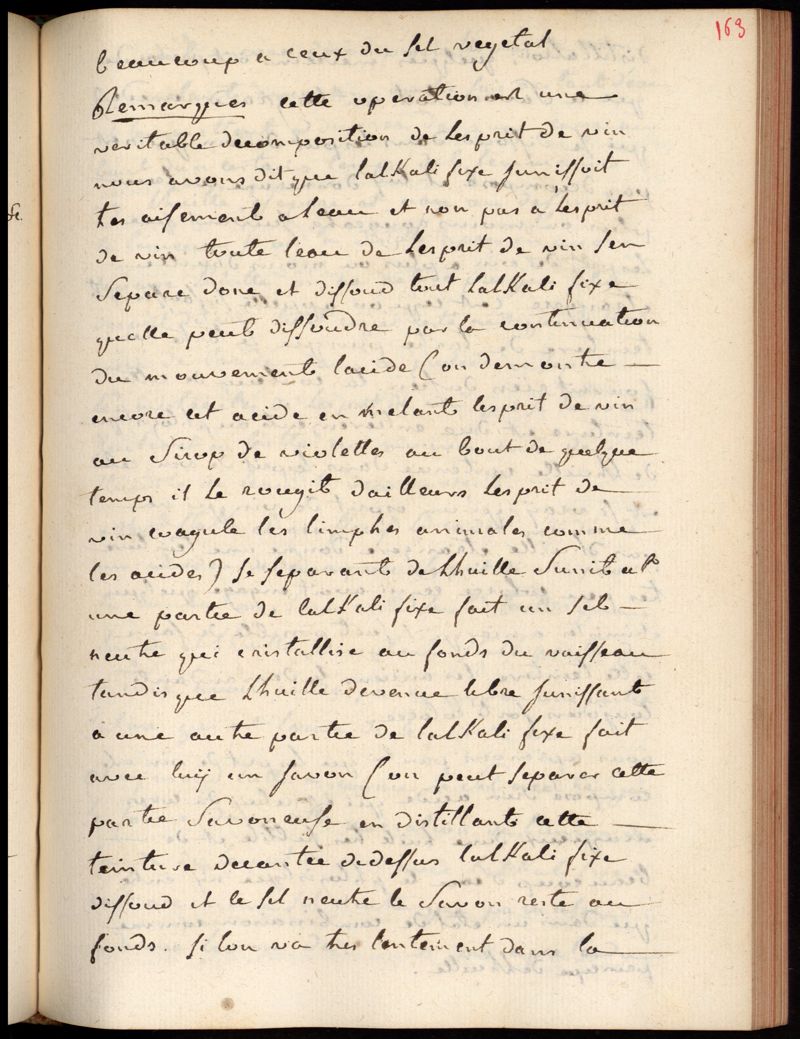 163
beaucoup a ceux du sel vegetal
Remarques cette operation est une
veritable decomposition de Lesprit de vin
nous avons dit que lalKali fixe sunissoit
tres aisement a Leau et non pas a Lesprit
de vin toute leau de Lesprit de vin sen
Separe donc et dissoud tout LalKali fixe
quelle peut dissoudre par la continuation
du mouvement lacide (on demontre —
encore cet acide en melant lesprit de vin
au Sirop de violettes au bout de quelque
temps il Le rougit dailleurs Lesprit de
vin coagule les limphes animales comme
les acides) se separant de Lhuille Sunit a
une partie de lalKali fixe fait un sel —
neutre qui cristallise au fonds du vaisseau
tandis que Lhuille devenue libre sunissant
a une autre partie de lalKali fixe fait
avec luy un savon (on peut separer cette
partie Savoneuse en distillant cette —
teinture decantée dedessus lalKali fixe
dissoud et le sel neutre le Savon reste au
fonds. si lon va tres lentement dans la